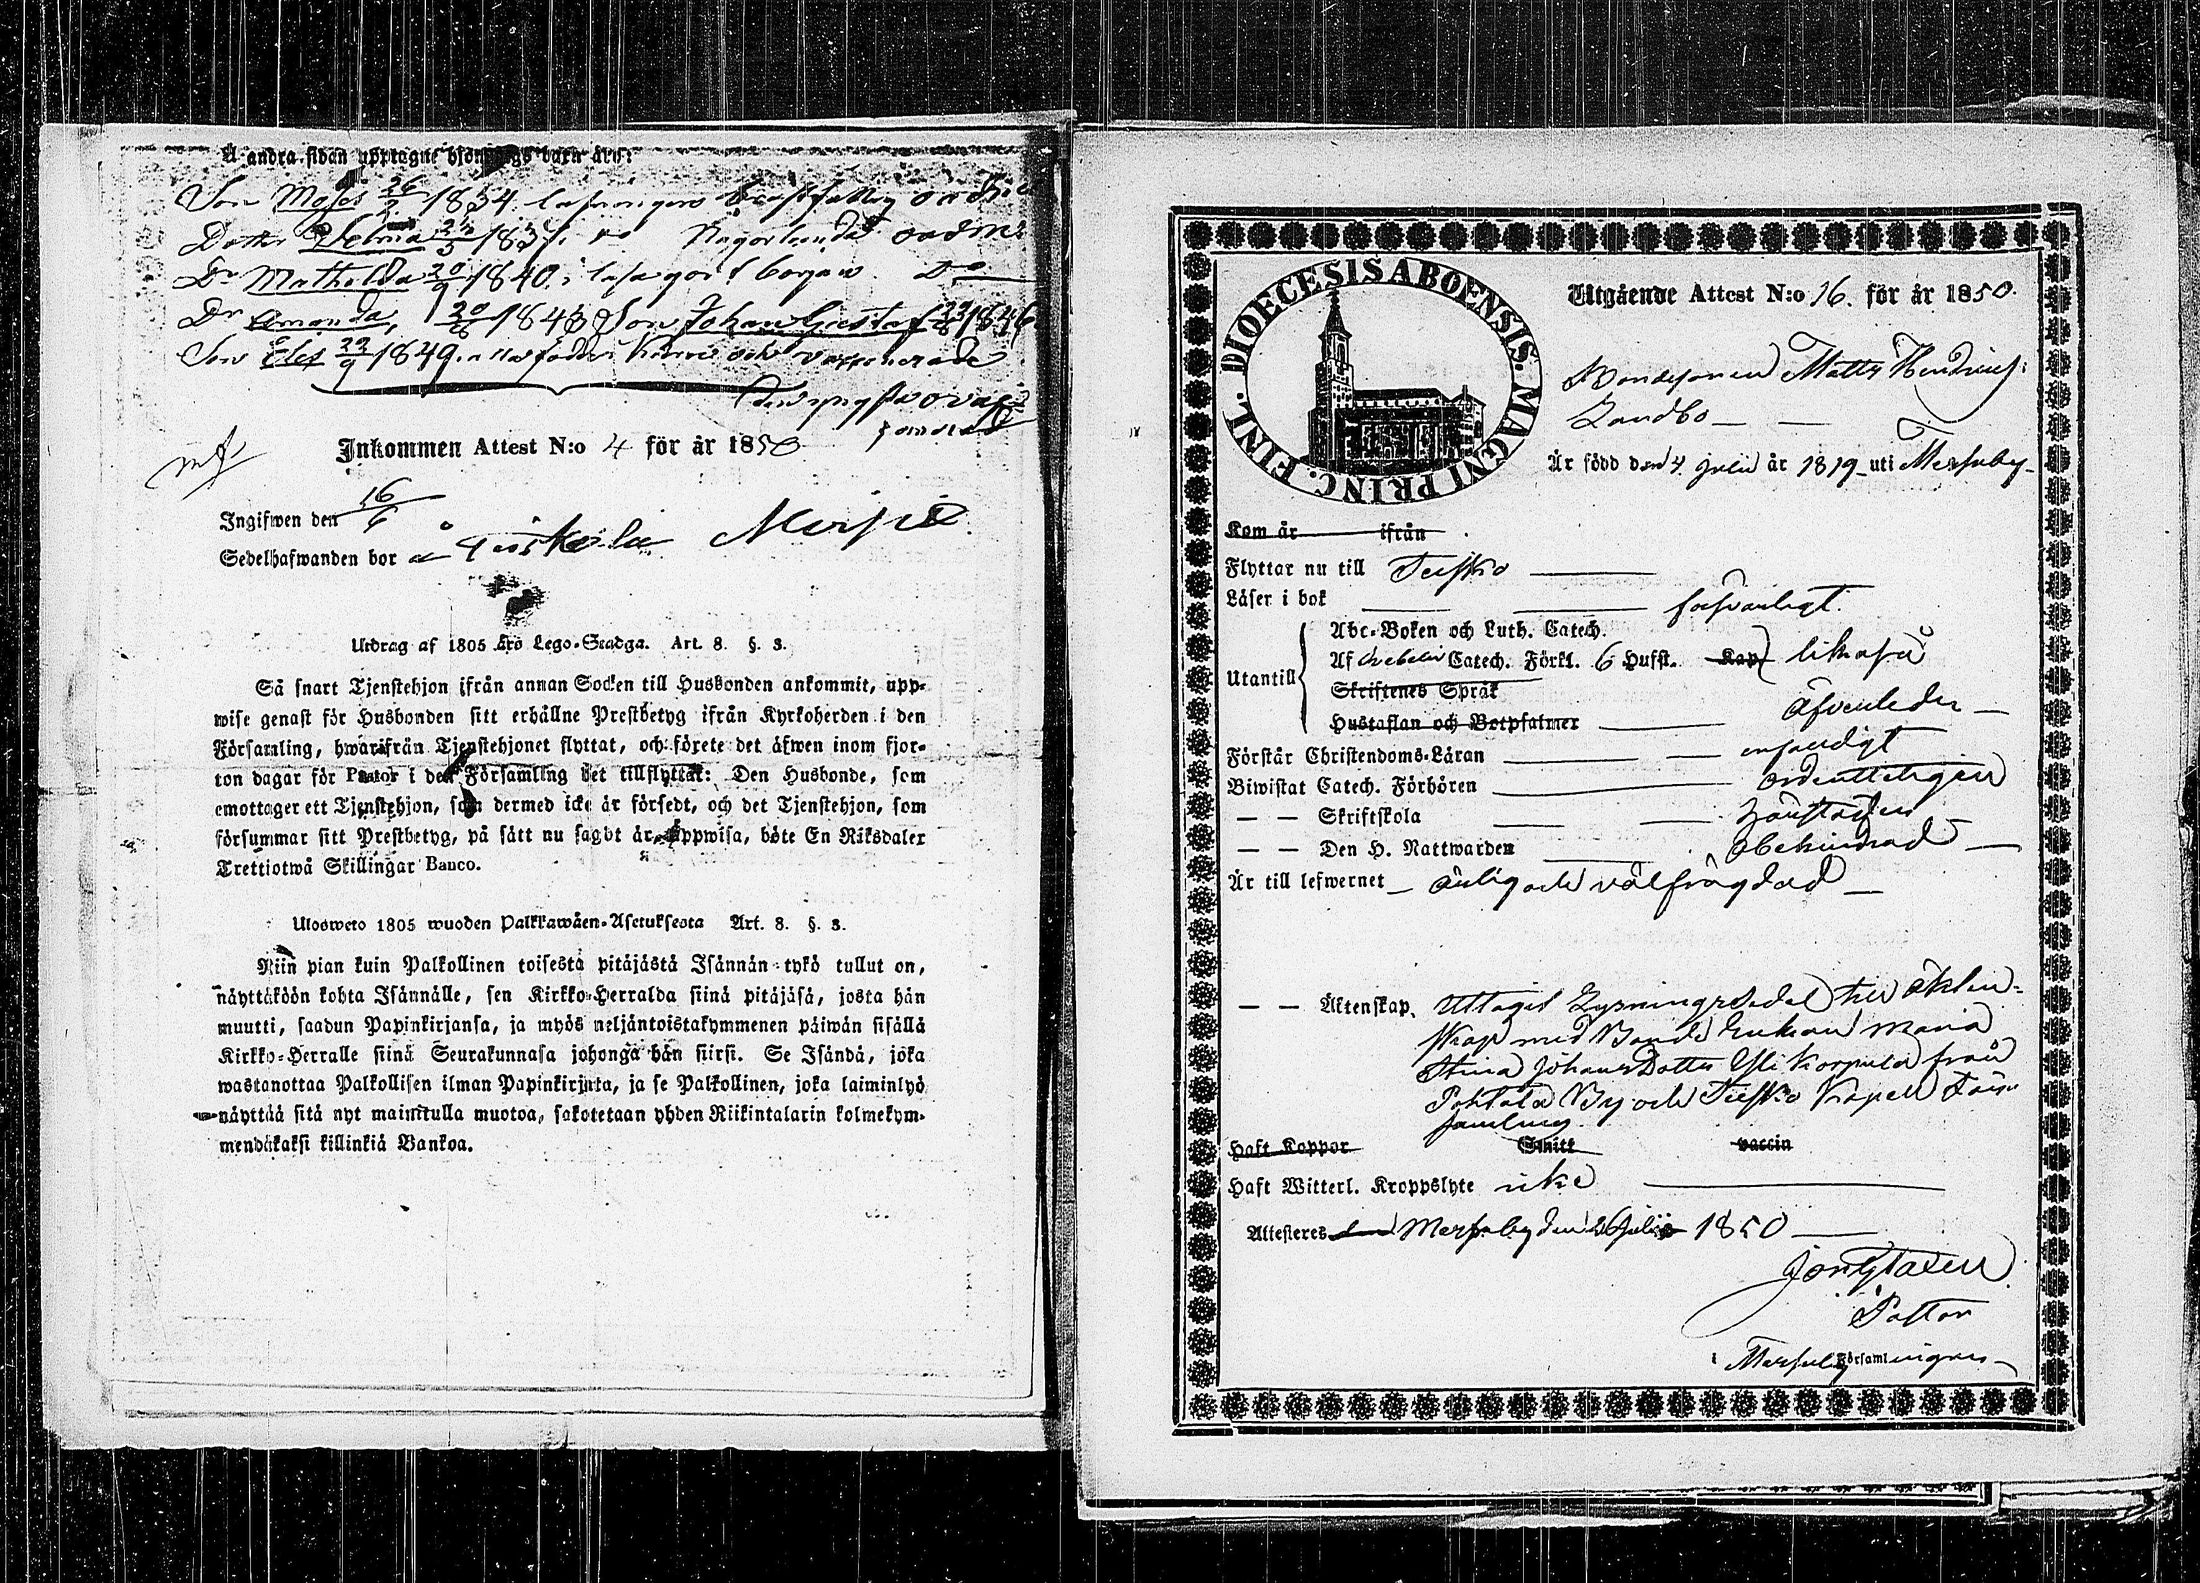 Å andra sidan upptagne barn äro:
Son Moses 26/2 1834.
Dotter Selma 24/5 183
Dr Mathilda 20/9 1840. i
Dr Amanda, 20/8 1843 Son Johan Gustaf 23/8 1846
Son Elis 22/9 1849. och vaccinerade
Inkommen Attest N:o 4 för år 1850
Ingifwen den 16/6
Sedelhafwanden bor å
Utdrag af 1805 års Lego-Stadga. Art. 8. §. 3.
Så snart Tjenstehjon ifrån annan Socken till Husbonden ankommit, upp-
wise genast för Husbonden sitt erhållne Prestbetyg ifrån Kyrkoherden i den
Församling, hwarifrån Tjenstehjonet flyttat, och förete det äfwen inom fjor-
ton dagar för Pastor i den Församling det tillflyttat: Den Husbonde, som
emottager ett Tjenstehjon, som dermed icke är försedt, och det Tjenstehjon, som
försummar sitt Prestbetyg, på sätt nu sagdt är, uppwisa, böte En Riksdaler
Trettiotwå Skillingar Banco.
Ulosweto 1805 wuoden Palkkawäen-Asetuksesta Art. 8. §. 3.
Niin pian kuin Palkollinen toisesta pitäjästä Isännän tykö tullut on,
näyttäköön kohta Isännälle, sen Kirkko-Herralda siinä pitäjäsä, josta hän
muutti, saadun Papinkirjansa, ja myös neljäntoistakymmenen päiwän sisällä
Kirkko-Herralle siinä Seurakunnasa johonga hän siirsi. Se Isändä, joka
wastanottaa Palkollisen ilman Papinkirjata, ja se Palkollinen, joka laiminlyö
näyttää sitä nyt mainitulla muotoa, sakotetaan yhden Riikintalarin kolmekym-
mendäkaksi killinkiä Bankoa.
DIOECESIS ABOENSIS. MAGNI PRINC. FINL.
Utgående Attest N:o 16. för år 1850.
Bondesonen Matts Hendrics:
Landbo
Är född den 4 Julii år 1819 uti Messuby
Kom år ifrån
Flyttar nu till Teisko
Läser i bok försvarligt.
Utantill
Abc-Boken och Luth. Catech.
Af Svebelii Catech. Förkl. 6 Hufst. Kap likaså
Skriftenes Språk
Hustaflan och Botpsalmer äfvenledes
Förstår Christendoms-Läran enfaldigt
Biwistat Catech. Förhören ordentligen
— — Skriftskola
— — Den H. Nattwarden obehindrad
Är till lefwernet ärlig och välfrägdad
— — Äktenskap. Uttagit Lysningssedel till äkten-
skap med Bonde Enkan Maria
Stina Johans Dotter Yli Korpula från
Pohtola By och Teisko Kapell För-
samling.
Haft Koppor Smitt vaccin
Haft Witterl. Kroppslyte icke
Attesteres Messuby den Julii 1850
Pastor
i Messuby Församlingen